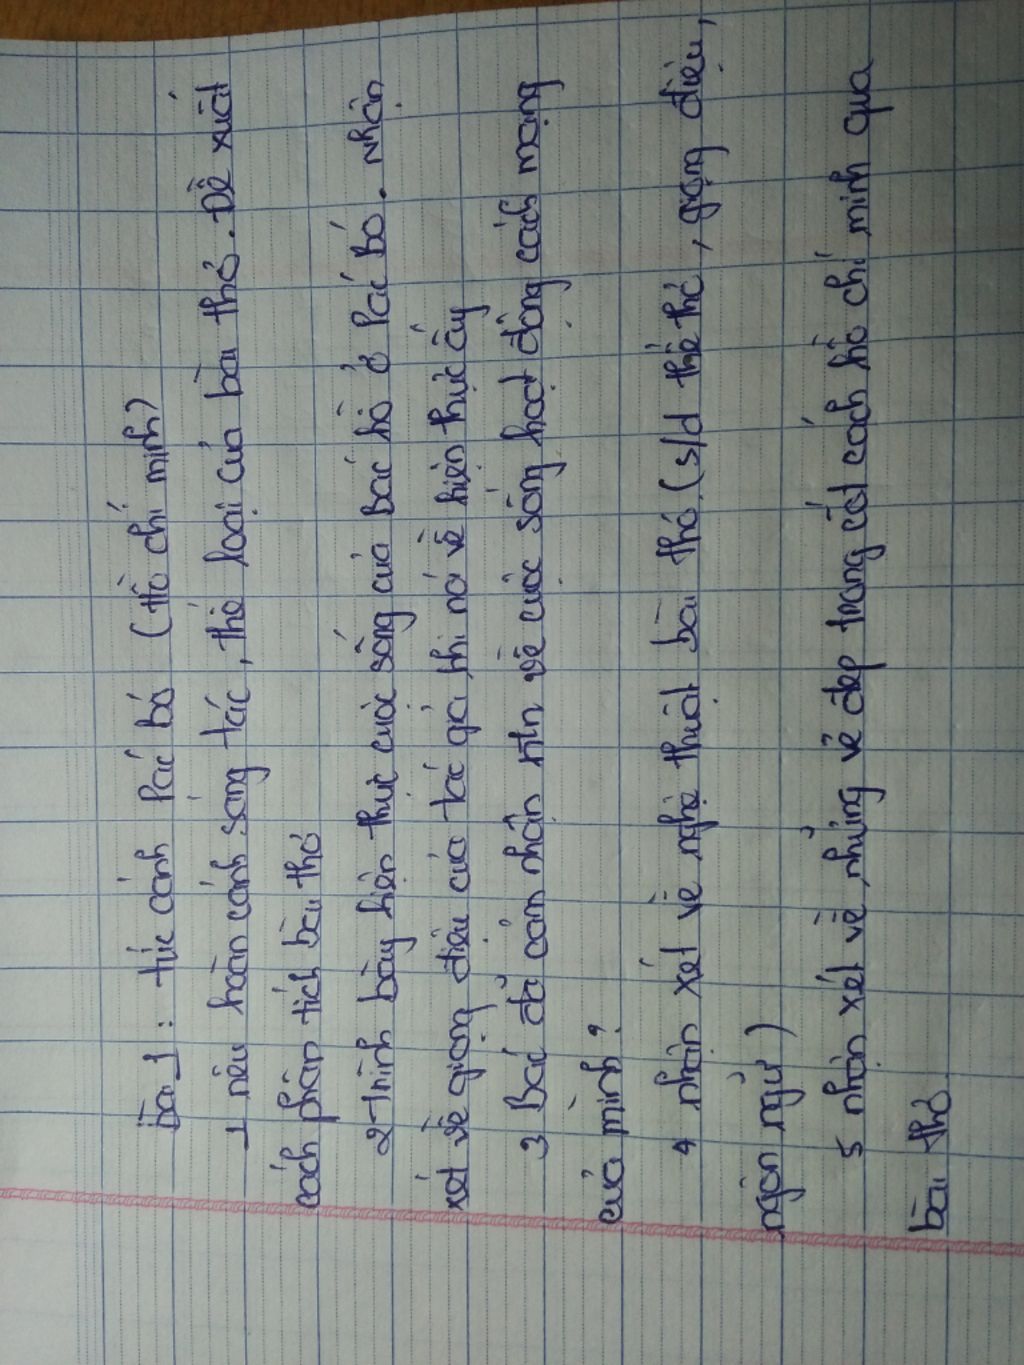 Bài 1: tức cảnh Pác bó (Hồ chí minh)
1 nêu hoàn cảnh sáng tác, thể loại của bài thơ. Đề xuất
cách phân tích bài thơ
2 Trình bày hiện thực cuộc sống của Bác hồ ở Pác Bó. Nhận
xét về giọng điệu của tác giả khi nói về hiện thực ấy
3 Bác đã cảm nhận ntn về cuộc sống hoạt động cách mạng
của mình?
4 nhận xét về nghệ thuật bài thơ (s/d thể thơ, giọng điệu,
ngôn ngữ)
5 nhận xét về những vẻ đẹp trong cốt cách hồ chí minh qua
bài thơ